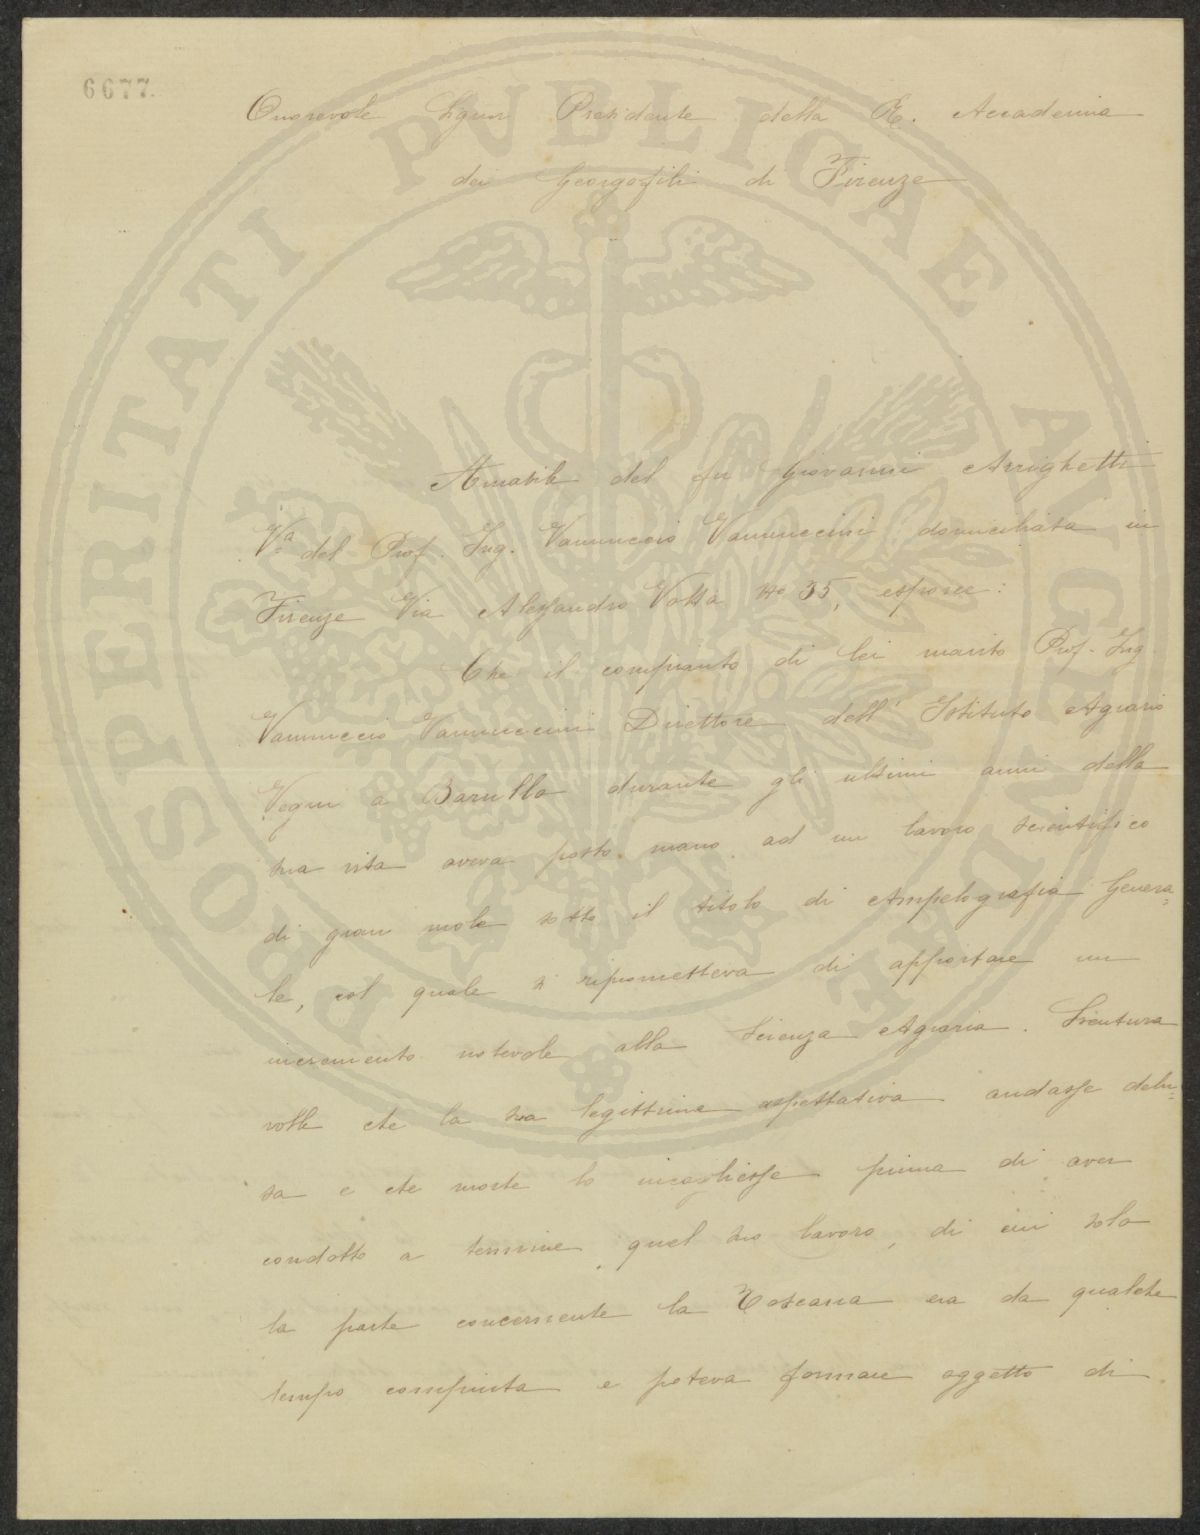 6677.
PROSPERITATI PUBLICAE AUGENDAE
Onorevole Signor Presidente della R. Accademia
dei Georgofili di Firenze
Amabile del fu Giovanni Arrighetti
Vª del Prof. Ing. Vannuccio Vannuccini domiciliata in
Firenze Via Alessandro Volta No 35, espone:
Che il compianto di lei marito Prof. Ing.
Vannuccio Vannuccini Direttore dell' Istituto Agrario
Vegni a Barullo durante gli ultimi anni della
sua vita aveva posto mano ad un lavoro scientifico
di gran mole sotto il titolo di Ampelografia Genera=
le, col quale si riprometteva di apportare un
incremento notevole alla Scienza Agraria. Sventura
volle che la sua legittima aspettativa andasse delu=
sa e che morte lo incogliesse prima di aver
condotto a termine quel suo lavoro, di cui solo
la parte concernente la Toscana era da qualche
tempo compiuta e poteva formare oggetto di